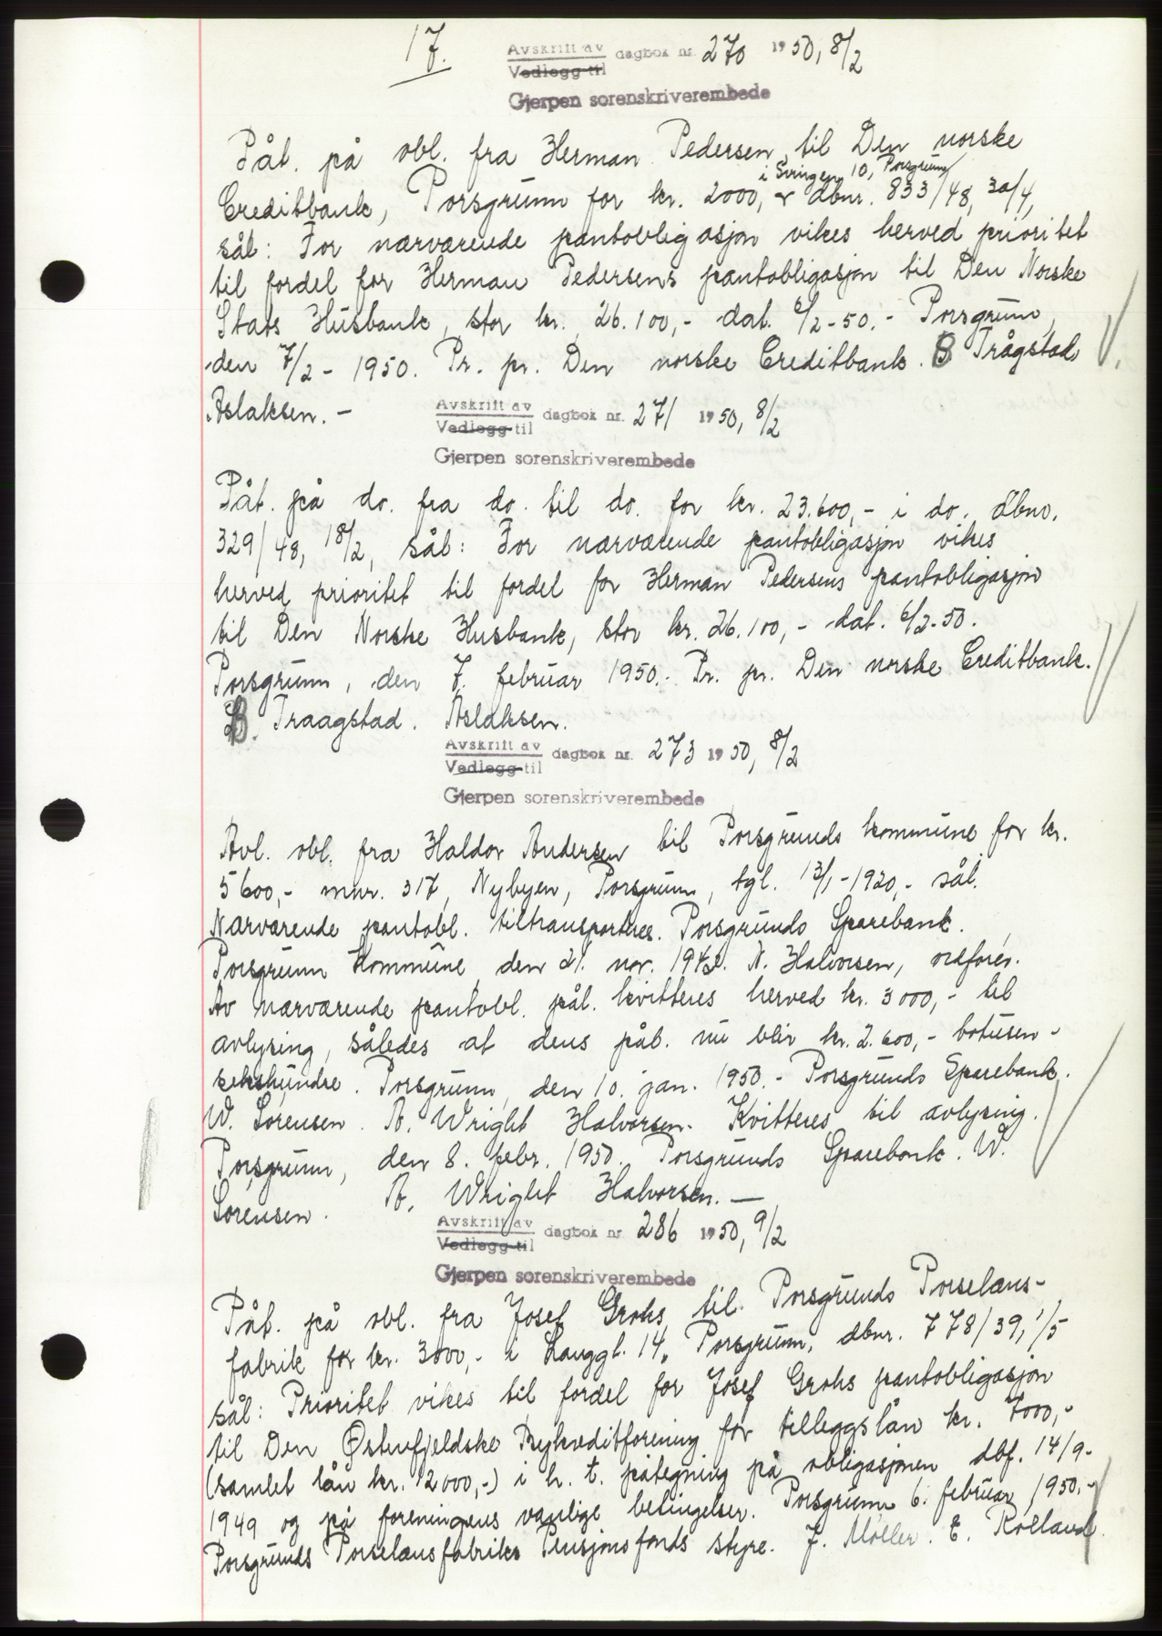 17.
Avskrift av
Vedlegg til dagbok nr. 270 1950, 8/2
Gjerpen sorenskriverembede
Påt. på obl. fra Herman Pedersen til Den norske
i Svingen 10, Porsgrunn
Creditbank, Porsgrunn for kr. 2000, dbnr. 833/48, 30/4,
sål: For nærværende pantobligasjon vikes herved prioritet
til fordel for Herman Pedersens pantobligasjon til Den Norske
Stats Husbank, stor kr. 26.100,- dat. 6/2-50.- Porsgrunn,
den 7/2 - 1950. Pr. pr. Den norske Creditbank. B Trågstad
Aslaksen. -
Avskrift av
Vedlegg til dagbok nr. 271 1950, 8/2
Gjerpen sorenskriverembede
Påt. på do. fra do. til do. for kr. 23.600,- i do. dbno.
329/48, 18/2, sål: For nærværende pantobligasjon vikes
herved prioritet til fordel for Herman Pedersens pantobligasjon
til Den Norske Husbank, stor kr. 26.100,- dat. 6/2-50.
Porsgrunn, den 7. februar 1950.- Pr. pr. Den norske Creditbank.
B. Traagstad. Aslaksen.
Avskrift av
Vedlegg til dagbok nr. 273 1950, 8/2
Gjerpen sorenskriverembede
Avl. obl. fra Haldor Andersen til Porsgrunds kommune for kr.
5600,- mnr. 317, Nybyen, Porsgrunn, tgl. 13/1-1920,- sål.
Nærværende pantobl. tiltransporteres Porsgrunds Sparebank.
Porsgrunn kommune, den 21. nov. 1942. N. Halvorsen, ordfører.
Av nærværende pantobl. pål. kvitteres herved kr. 3000,- til
avlysing, således at dens påb. nu blir kr. 2.600,- totusen-
sekshundre. Porsgrunn, den 10. jan. 1950.- Porsgrunds Sparebank.
W. Sørensen. A. Wright Halvorsen. Kvitteres til avlysing.
Porsgrunn, den 8. febr. 1950. Porsgrunds Sparebank. W.
Sørensen. A. Wright Halvorsen. -
Avskrift av
Vedlegg til dagbok nr. 286 1950, 9/2
Gjerpen sorenskriverembede
Påt. på obl. fra Josef Grohs til Porsgrunds Porselæns-
fabrik for kr. 3000,- i Langgt. 14, Porsgrunn, dbnr. 778/39, 1/5
sål: Prioritet vikes til fordel for Josef Grohs pantobligasjon
til Den Østenfjeldske Bykreditforening for tilleggslån kr. 7000,-
(samlet lån kr. 12000,-) i h. t. påtegning på obligasjonen dbf. 14/9-
1949 og på foreningens vanlige betingelser. Porsgrunn 6. februar 1950.-
Porsgrunds Porselænsfabriks Pensjonsfonds styre. J. Møller. E. Rolland.